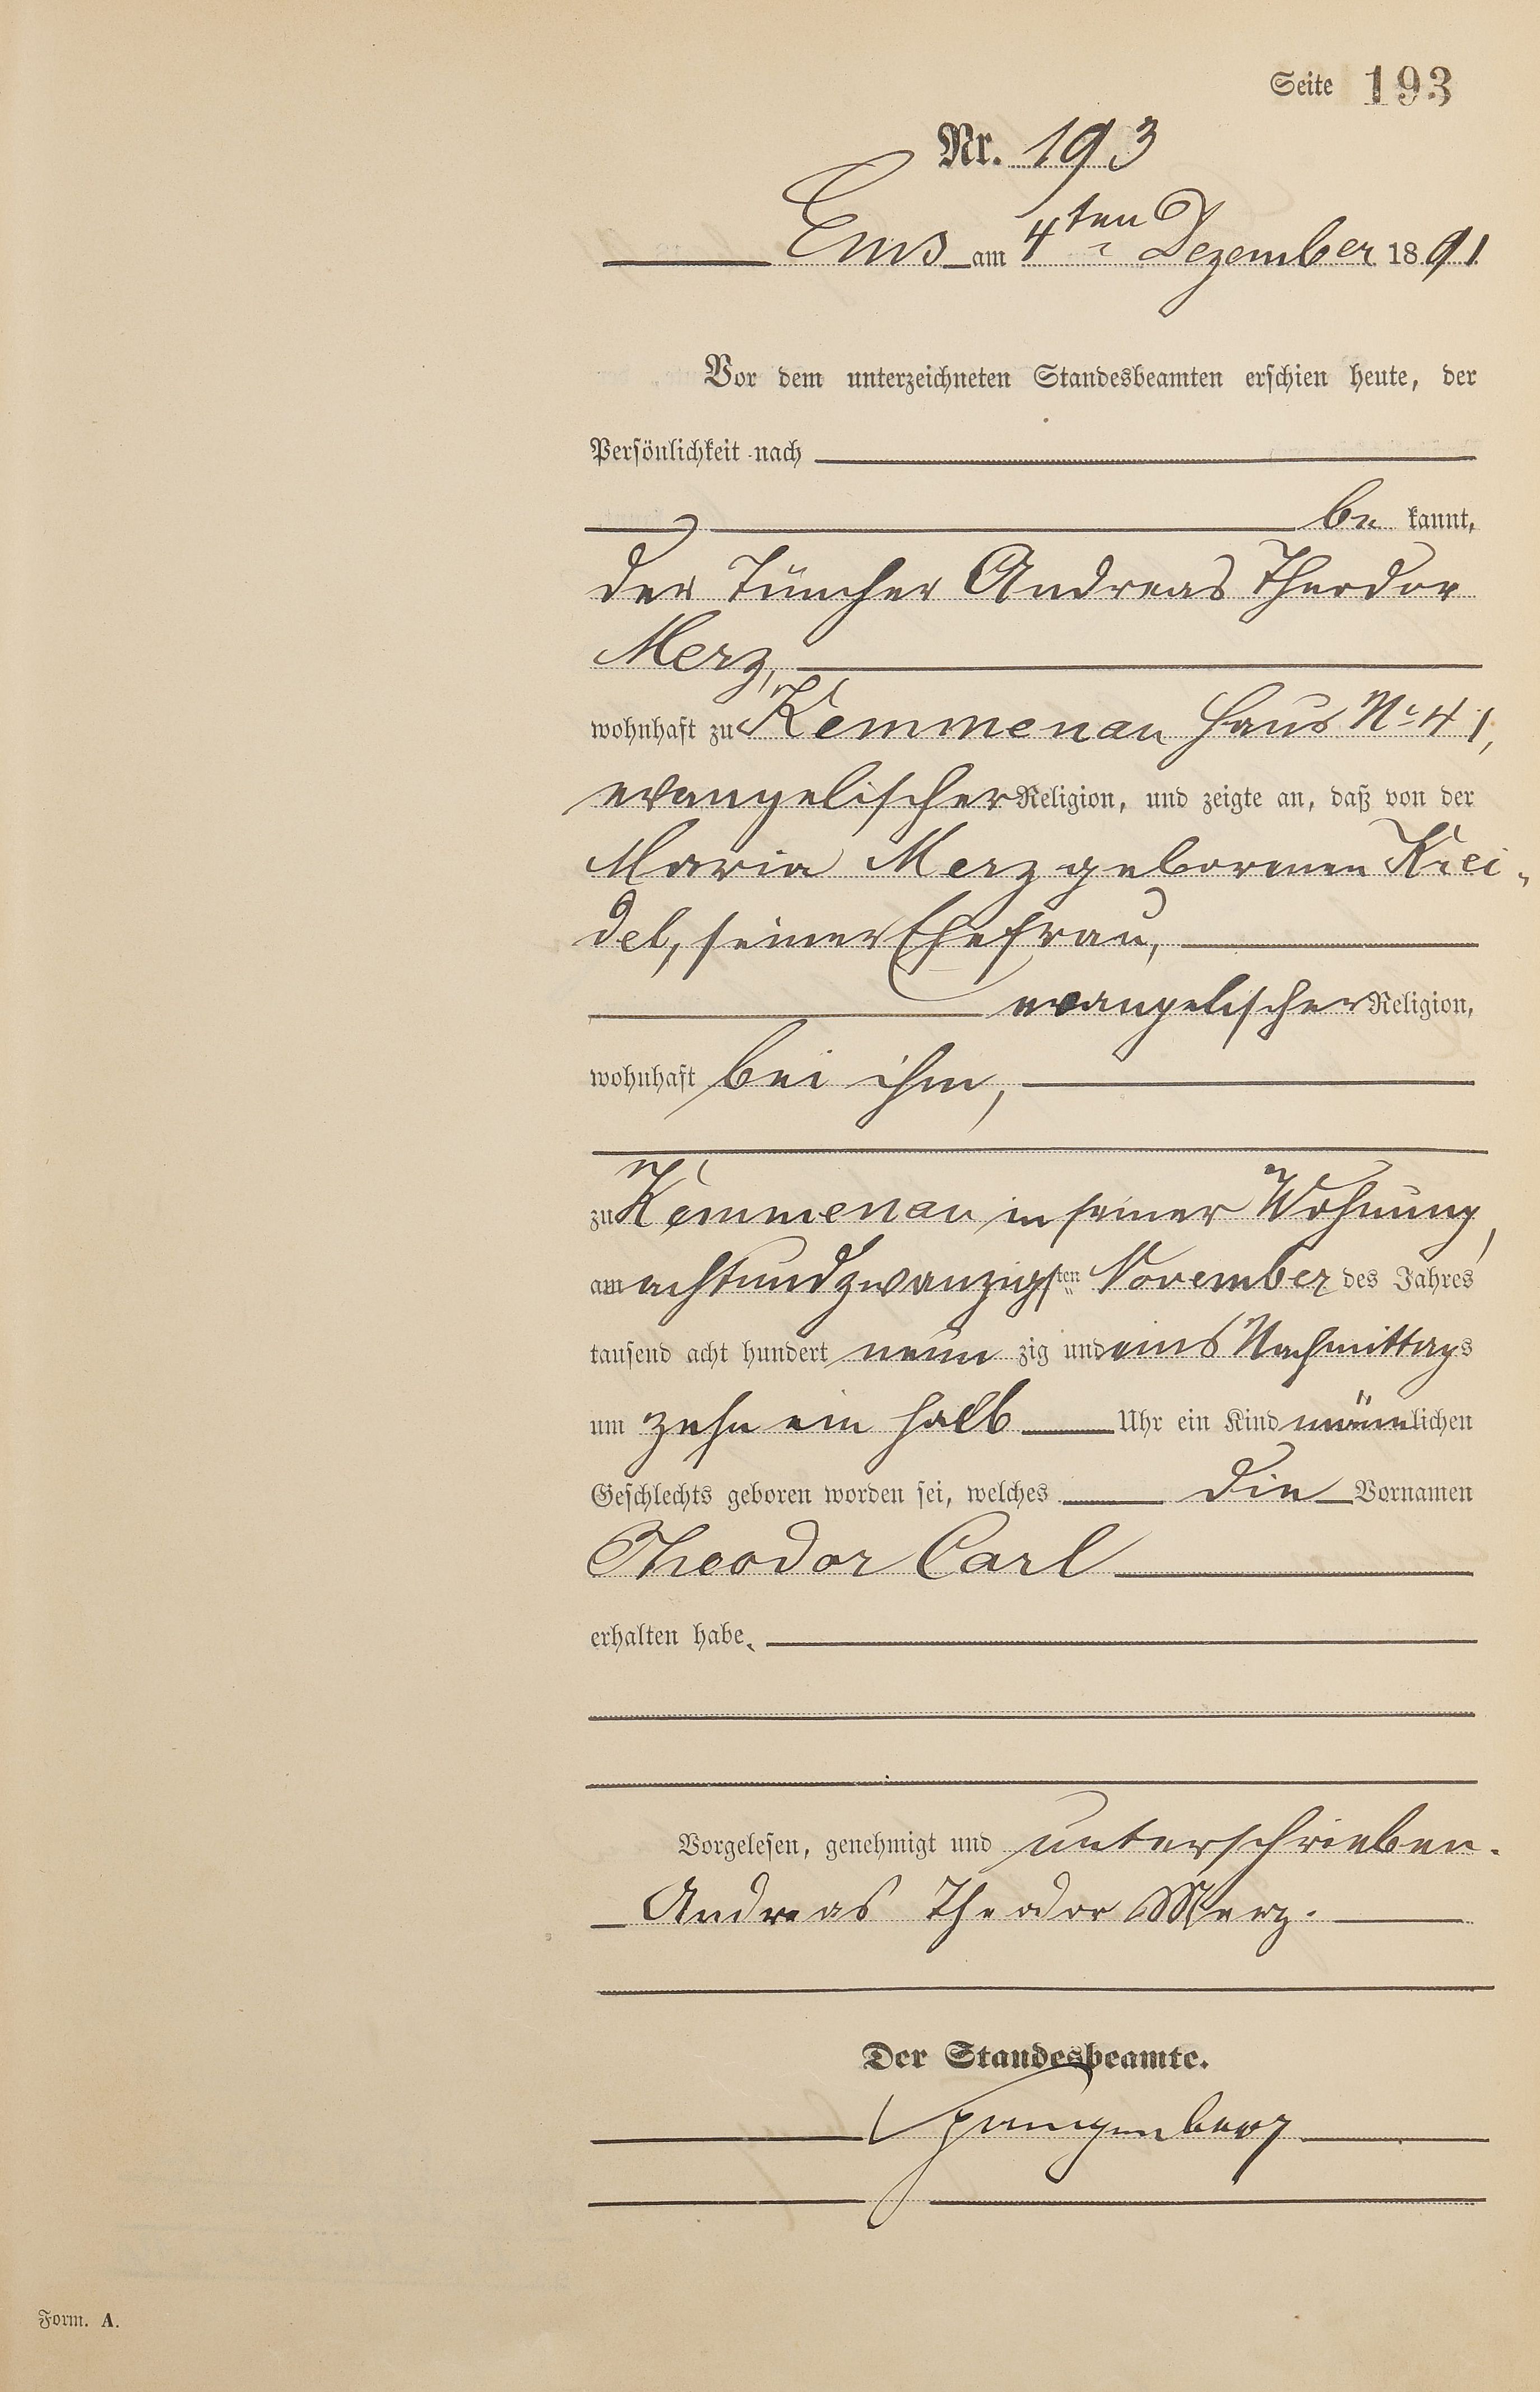 Seite 193
Nr. 193
Ems am 4ten Dezember 1891
Vor dem unterzeichneten Standesbeamten erschien heute, der
Persönlichkeit nach
be kannt,
der Tüncher Andreas Theodor
Merz,
wohnhaft zu Kemmenau Haus No 41,
evangelischer Religion, und zeigte an, daß von der
Maria Merz gebornen Krei-
del, seiner Ehefrau,
evangelischer Religion,
wohnhaft bei ihm,
zu Kemmenau in seiner Wohnung,
am achtundzwanzigsten November des Jahres
tausend acht hundert neun zig und eins Nachmittags
um zehn ein halb Uhr ein Kind männlichen
Geschlechts geboren worden sei, welches die Vornamen
Theodor Carl
erhalten habe.
Vorgelesen, genehmigt und unterschrieben.
Andreas Theodor Merz.
Der Standesbeamte.
Spangenberg
Form. A.